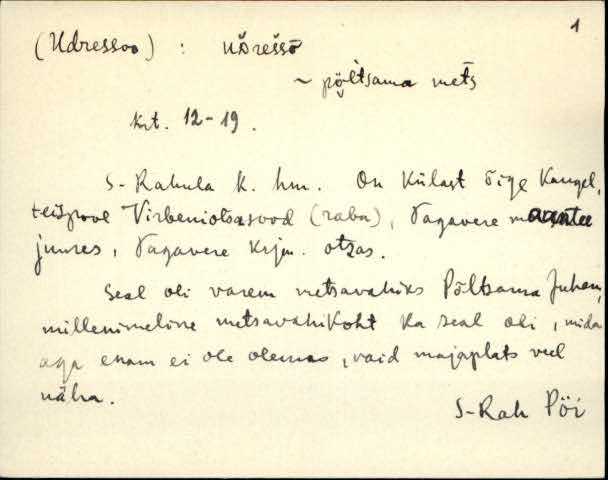 1
(Udressoo) : uďressō
~ pȫl̀tsama mets
krt. 12-19.
S-Rahula k. hm. On külast õige kaugel,
teispool Virbeniotsasood (raba), Vagavere maantee
juures, Vagavere krjm. otsas.
Seal oli varem metsavahiks Põltsama Juhan,
millenimeline metsavahikoht ka seal oli, mida
aga enam ei ole olemas, vaid majaplats veel
näha.
S-Rah Pöi